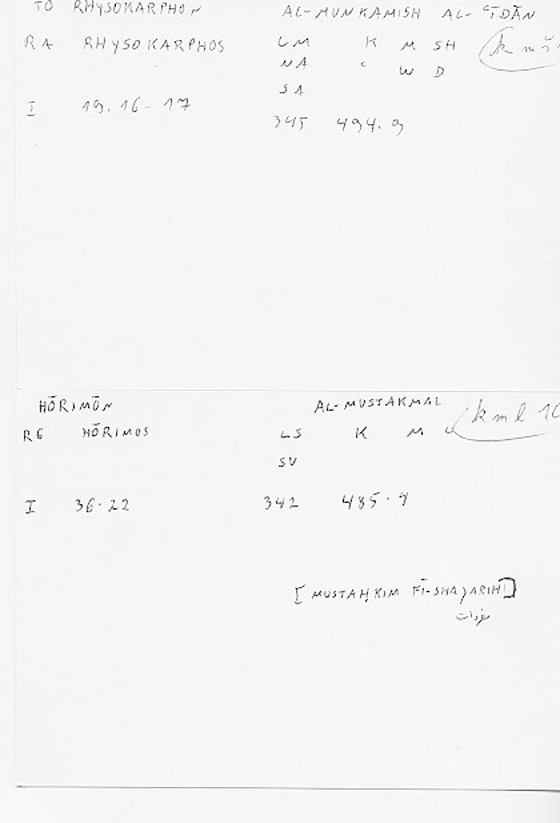 TO RHYSOKARPHON AL-MUNKAMISH AL-ʿĪDĀN
RA RHYSOKARPHOS LM K M SH (k m š
NA ʿ W D
SA
I 19.16-17
345 494.9
HŌRIMŌN AL-MUSTAKMAL (k m l 10
RE HŌRIMOS LS K M L
SV
I 36.22 342 485.4
[MUSTAḤKIM FĪ-SHAJARIHI]
مفردات